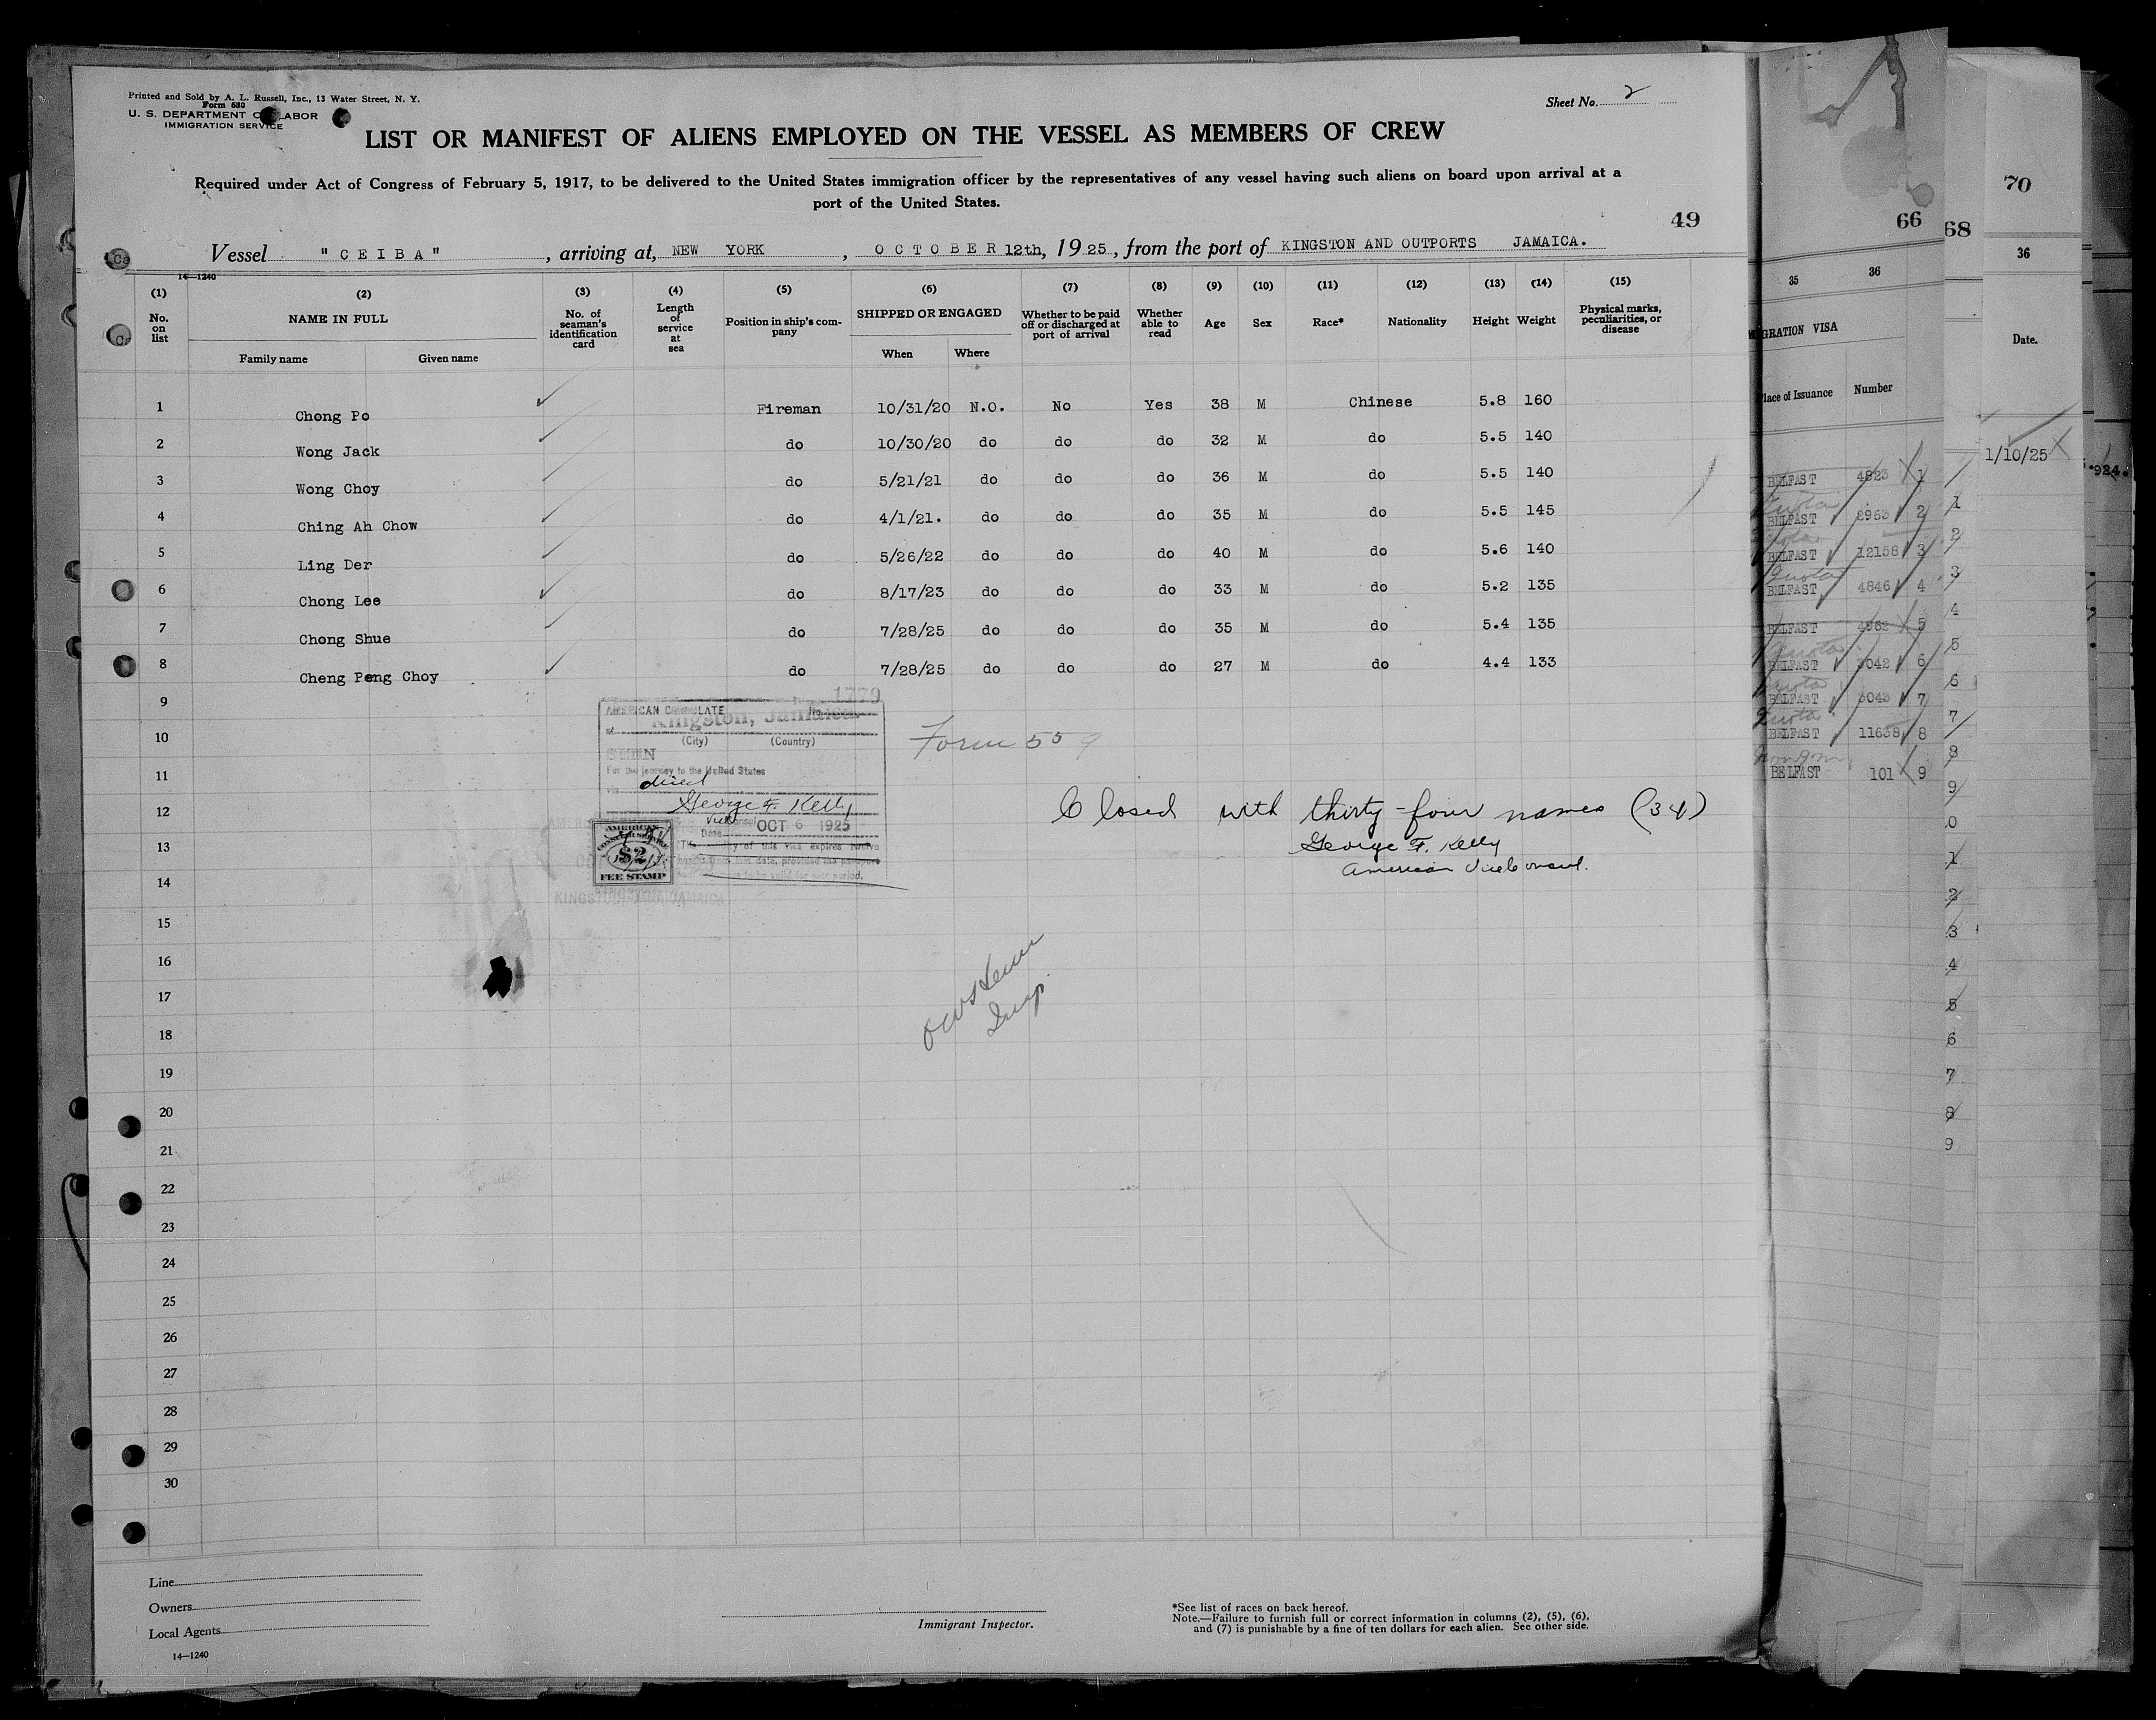 Printed and Sold by A. L. Russell, Inc., 13 Water Street, N. Y.
Form 680
U. S. DEPARTMENT OF LABOR
IMMIGRATION SERVICE
Sheet No. 2
LIST OR MANIFEST OF ALIENS EMPLOYED ON THE VESSEL AS MEMBERS OF CREW
Required under Act of Congress of February 5, 1917, to be delivered to the United States immigration officer by the representatives of any vessel having such aliens on board upon arrival at a
port of the United States.
49
Vessel "CEIBA", arriving at, NEW YORK, OCTOBER 12th, 1925, from the port of KINGSTON AND OUTPORTS JAMAICA.
14—1240
(1) (2) (3) (4) (5) (6) (7) (8) (9) (10) (11) (12) (13) (14) (15)
No. on list NAME IN FULL Family name Given name No. of seaman's identification card Length of service at sea Position in ship's company SHIPPED OR ENGAGED When Where Whether to be paid off or discharged at port of arrival Whether able to read Age Sex Race* Nationality Height Weight Physical marks, peculiarities, or disease
1 Chong Po Fireman 10/31/20 N.O. No Yes 38 M Chinese 5.8 160
2 Wong Jack do 10/30/20 do do do 32 M do 5.5 140
3 Wong Choy do 5/21/21 do do do 36 M do 5.5 140
4 Ching Ah Chow do 4/1/21. do do do 35 M do 5.5 145
5 Ling Der do 5/26/22 do do do 40 M do 5.6 140
6 Chong Lee do 8/17/23 do do do 33 M do 5.2 135
7 Chong Shue do 7/28/25 do do do 35 M do 5.4 135
8 Cheng Peng Choy do 7/28/25 do do do 27 M do 4.4 133
9
10
11
12
13
14
15
16
17
18
19
20
21
22
23
24
25
26
27
28
29
30
No. 1779
AMERICAN CONSULATE
at Kingston, Jamaica
(City) (Country)
SEEN
For the journey to the United States
via direct
George F. Kelly
Vice Consul
Date OCT 6 1925
validity of this visa expires twelve
months from this date, provided the passport
continues to be valid for that period.
AMERICAN
CONSULAR SERVICE
$2
FEE STAMP
KINGSTON, JAMAICA
Form 559
Closed with thirty-four names (34)
George F. Kelly
American Vice Consul.
Insp.
Line
Owners
Local Agents
14—1240
Immigrant Inspector.
*See list of races on back hereof.
Note.—Failure to furnish full or correct information in columns (2), (5), (6),
and (7) is punishable by a fine of ten dollars for each alien. See other side.
66
35 36
IGRATION VISA
lace of Issuance Number
BELFAST 4823 1
BELFAST 2963 2
BELFAST 12158 3
Quota
BELFAST 4846 4
BELFAST 4962 5
Quota
BELFAST 3042 6
Quota
BELFAST 3043 7
Quota
BELFAST 11638 8
BELFAST 101 9
68
1
2
3
4
5
6
7
8
9
0
1
2
3
4
5
6
7
8
9
70
36
Date.
1/10/25
924.